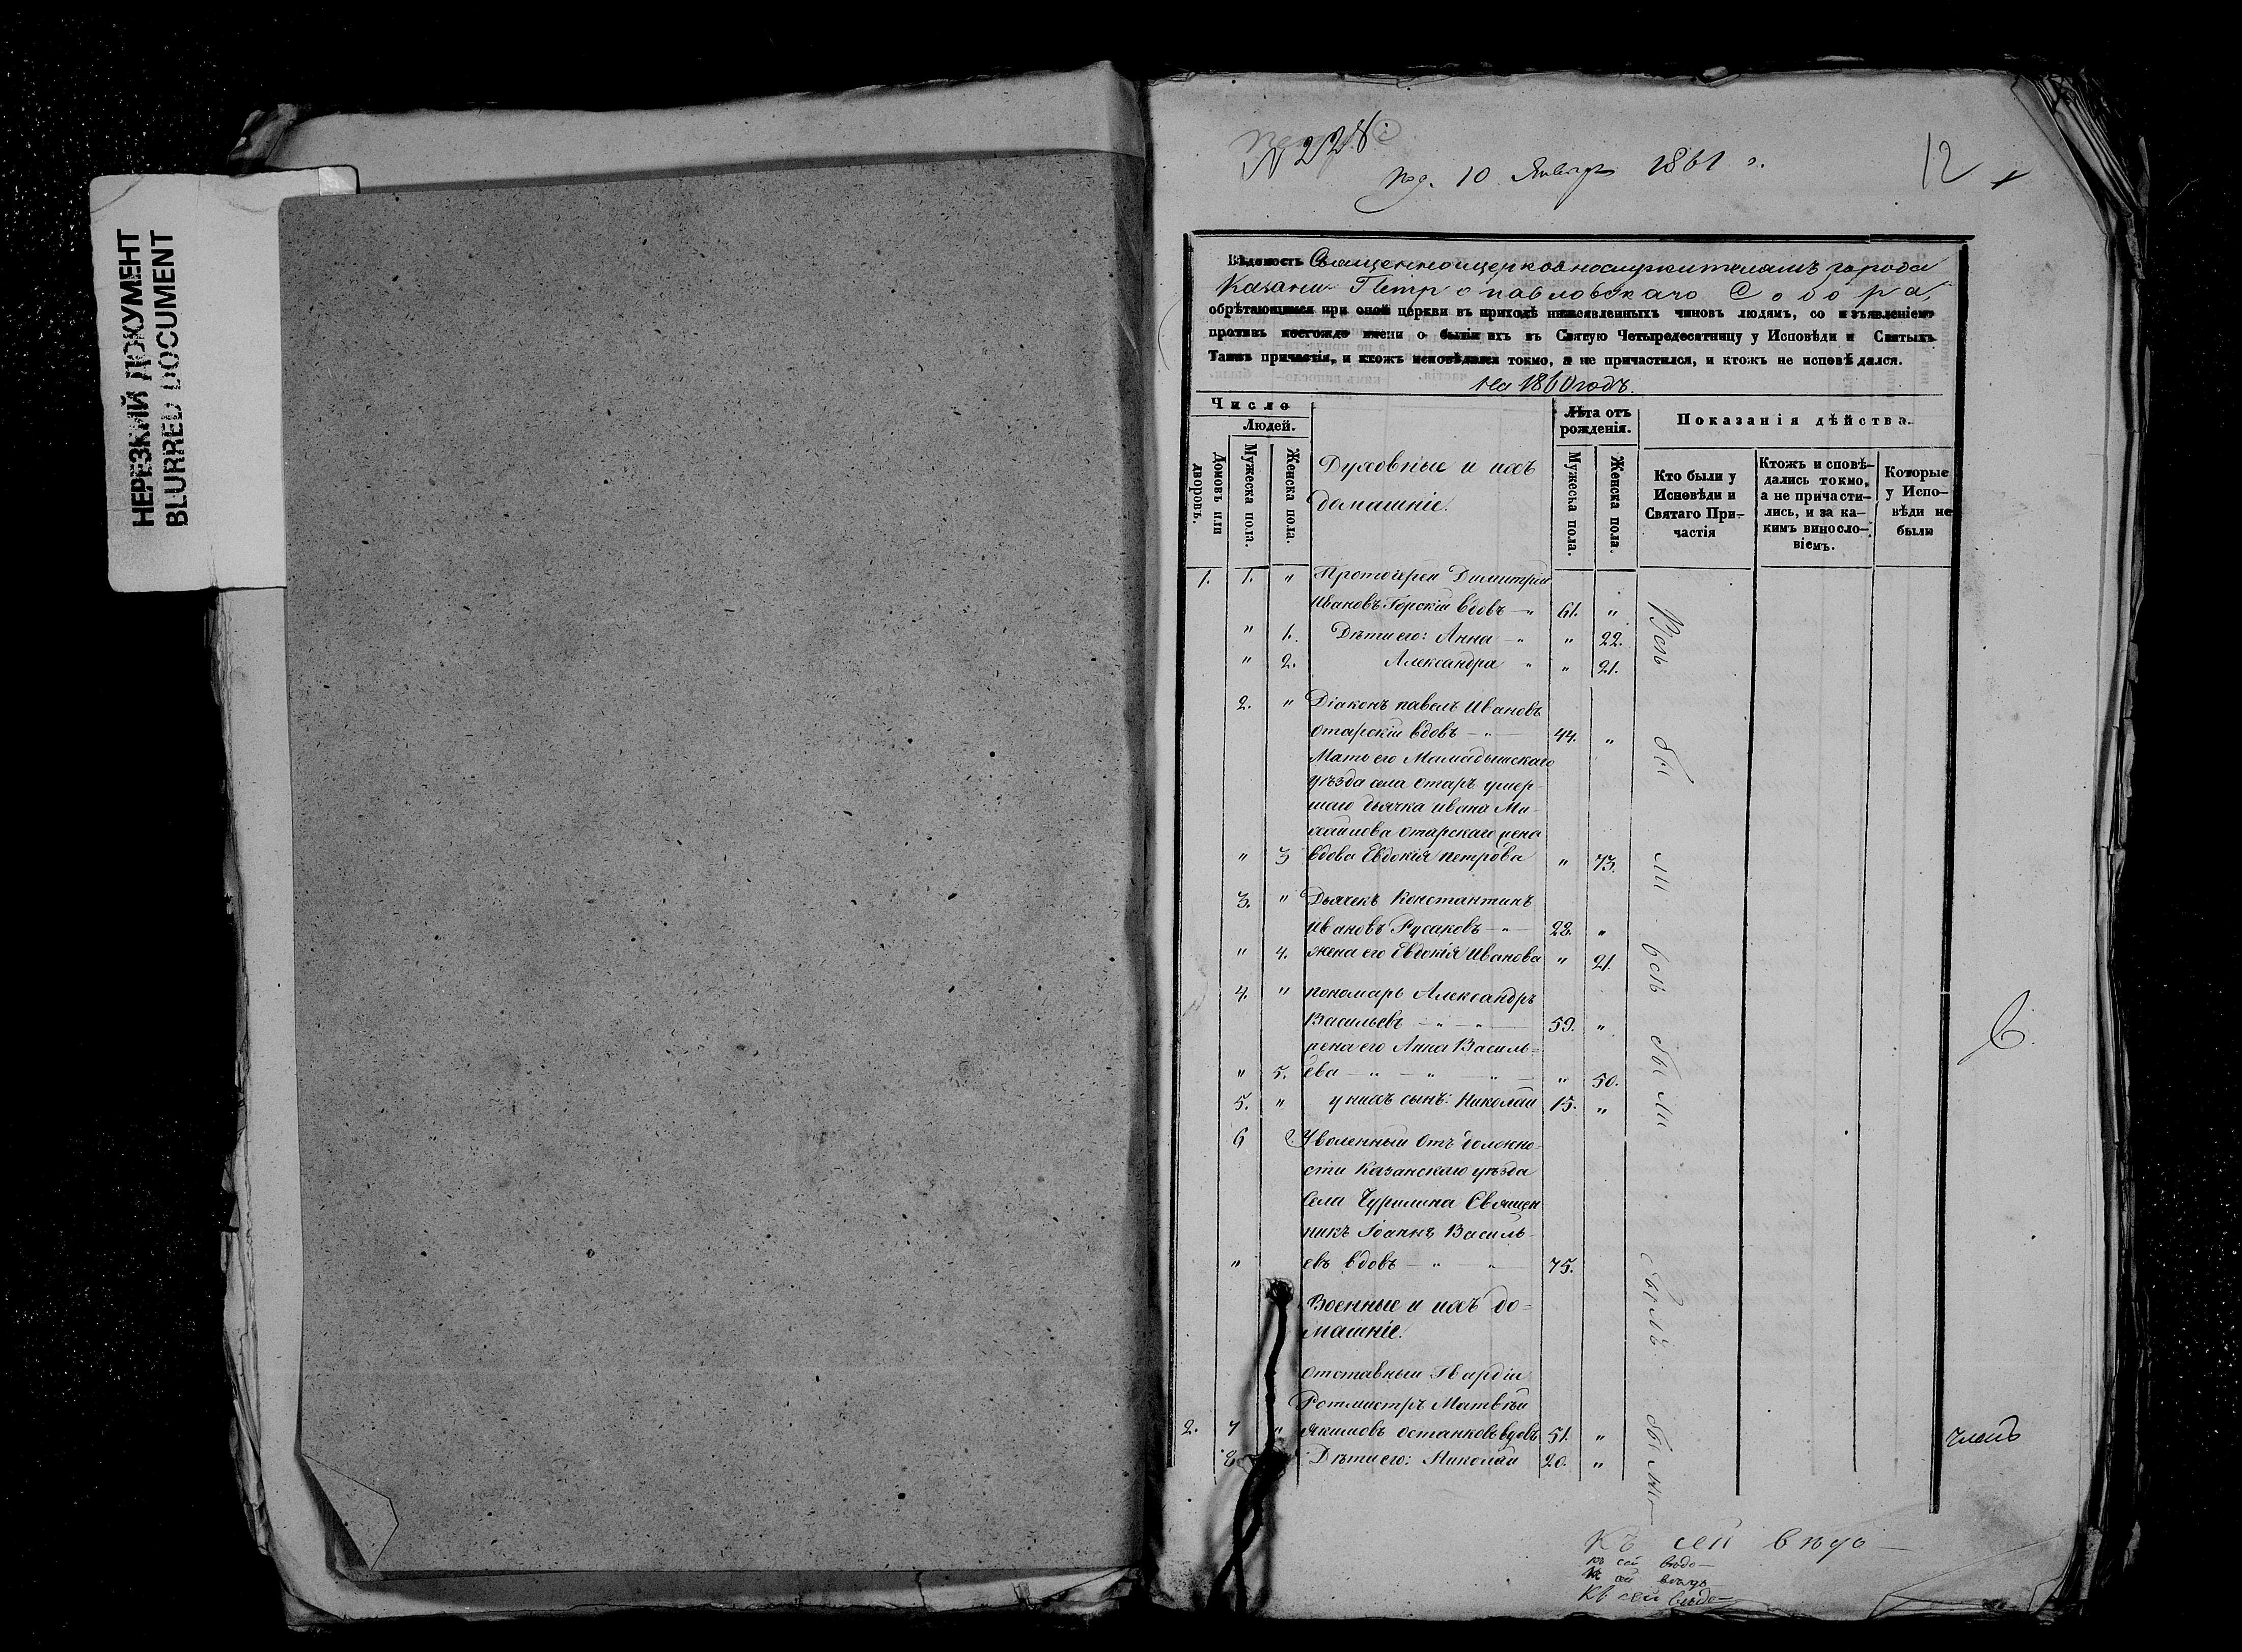 НЕРЕЗКИЙ ДОКУМЕНТ
BLURRED DOCUMENT
N 228
под. 10 Января 1861 г.
12
Вѣдомость Священноцерковнослужителямъ города
Казани Петропавловскаго Собора,
обрѣтающимся при оной церкви въ приходѣ нижеявленныхъ чиновъ людямъ, со изъявленіемъ
противъ коегождо имени о бытіи ихъ въ Святую Четыредесятницу у Исповѣди и Святыхъ
Таинъ причастія, и ктожъ исповѣдался токмо, а не причастился, и ктожъ не исповѣдался.
На 1860 годъ.
Число
Людей.
Домовъ или дворовъ.
Мужеска пола.
Женска пола.
Духовные и ихъ
домашніе.
Лѣта отъ
рожденія.
Мужеска пола.
Женска пола.
Показанія дѣйства.
Кто были у
Исповѣди и
Святаго При-
частія
Ктожъ исповѣ-
дались токмо,
а не причасти-
лись, и за ка-
кимъ винословіемъ.
Которые
у Испо-
вѣди не
были
1. 1. " Протоіерей Димитрій
Ивановъ Горскій вдовъ - " 61. "
" 1. Дѣти его: Анна - " " 22.
" 2. Александра " " 21.
2. " Діаконъ павелъ Ивановъ
Отарскій вдовъ - " - 44. "
Мать его Мамадышскаго
уѣзда села Отаръ умер-
шаго дьячка ивана Ми-
хайлова Отарскаго жена
" 3 вдова Евдокія петрова " 73.
3. " Дьячекъ Константинъ
Ивановъ Русаковъ - " - 22. "
" 4. жена его Евдокія Иванова " 21.
4. " пономарь Александръ
Васильевъ - " - " - 59. "
жена его Анна Василь=
" 5. ева - " - " - " - " 50.
5. " у нихъ сынъ: Николай 15. "
6 Уволенный отъ должно-
сти Казанскаго уѣзда
Села Чурилина Священ
никъ Іоаннъ Василь-
" евъ вдовъ - " - " 75.
Военные и ихъ до=
машніе.
Отставный Гвардіи
Ротмистръ Матвѣй
2. 7 " Якимовъ Останковъ вдовъ 51. "
8 Дѣти его: Николай 20. "
Всѣ
бы
ли
всѣ
были
былъ
были
членъ
Къ сей вѣдо-
къ сей вѣдо-
къ сей вѣдо
Къ сей вѣдо-